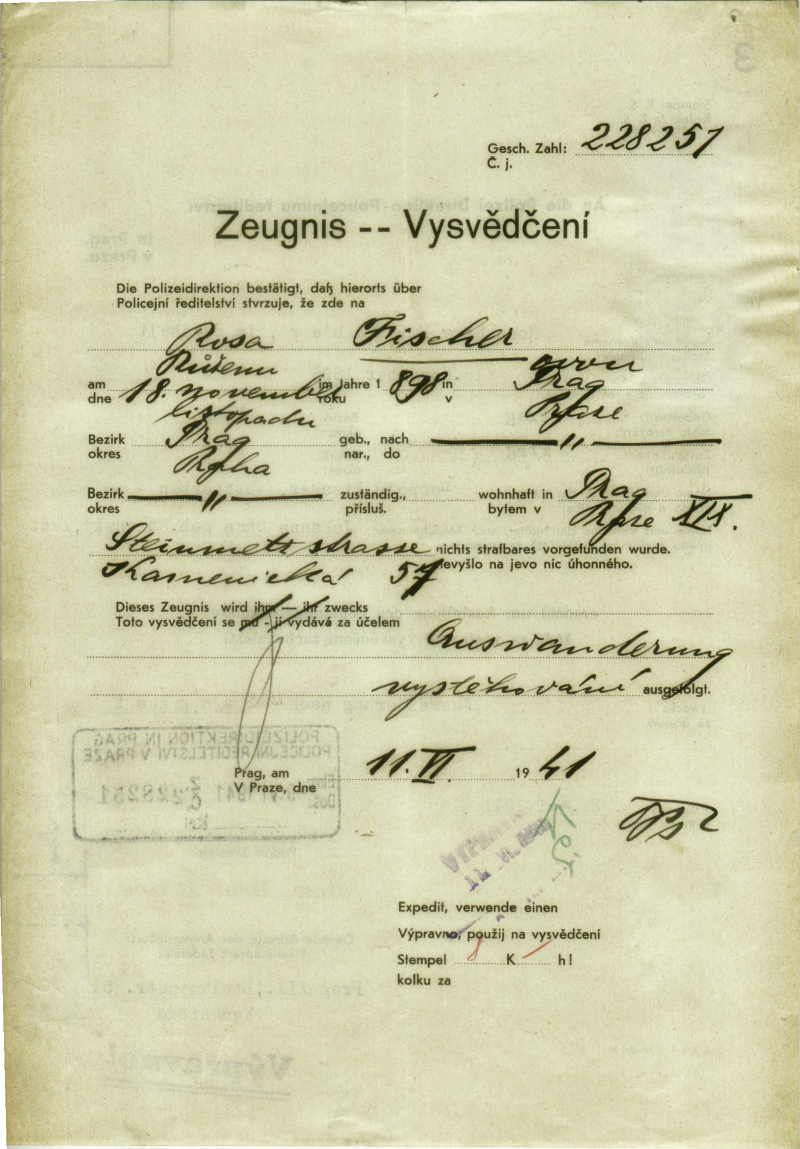 Gesch. Zahl: 228251
Č. j.
Zeugnis -- Vysvědčení
Die Polizeidirektion bestätigt, daß hierorts über
Policejní ředitelství stvrzuje, že zde na
Rosa Fischer
Růženu ovou
am 18. november im Jahre 1 898 in Prag
dne listopadu roku v Praze
Bezirk Prag geb., nach — " —
okres Praha nar., do
Bezirk — " — zuständig., wohnhaft in Prag
okres přísluš. bytem v Praze XIX.
Steinmetzstrasse nichts strafbares vorgefunden wurde.
Kamenická 57 nevyšlo na jevo nic úhonného.
Dieses Zeugnis wird ihm — ihr zwecks
Toto vysvědčení se mu - jí vydává za účelem
Auswanderung
vystěhování ausgefolgt.
POLIZEIDIREKTION IN PRAG
POLICEJNÍ ŘEDITELSTVÍ V PRAZE
228251
Prag, am 11. VI. 19 41
V Praze, dne
Expedit, verwende einen
Výpravno, použij na vysvědčení
Stempel 8 K — h!
kolku za
Výpravno!